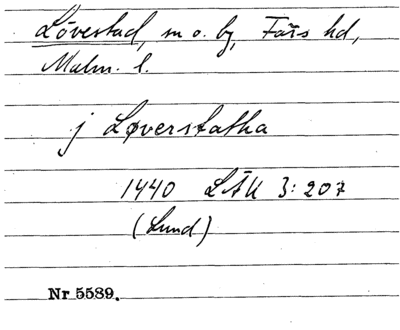 Lövestad, sn o. by, Färs hd,
Malm. l.
j Løverstatha
1440 LÄU 3: 207
(Lund)
Nr 5589.